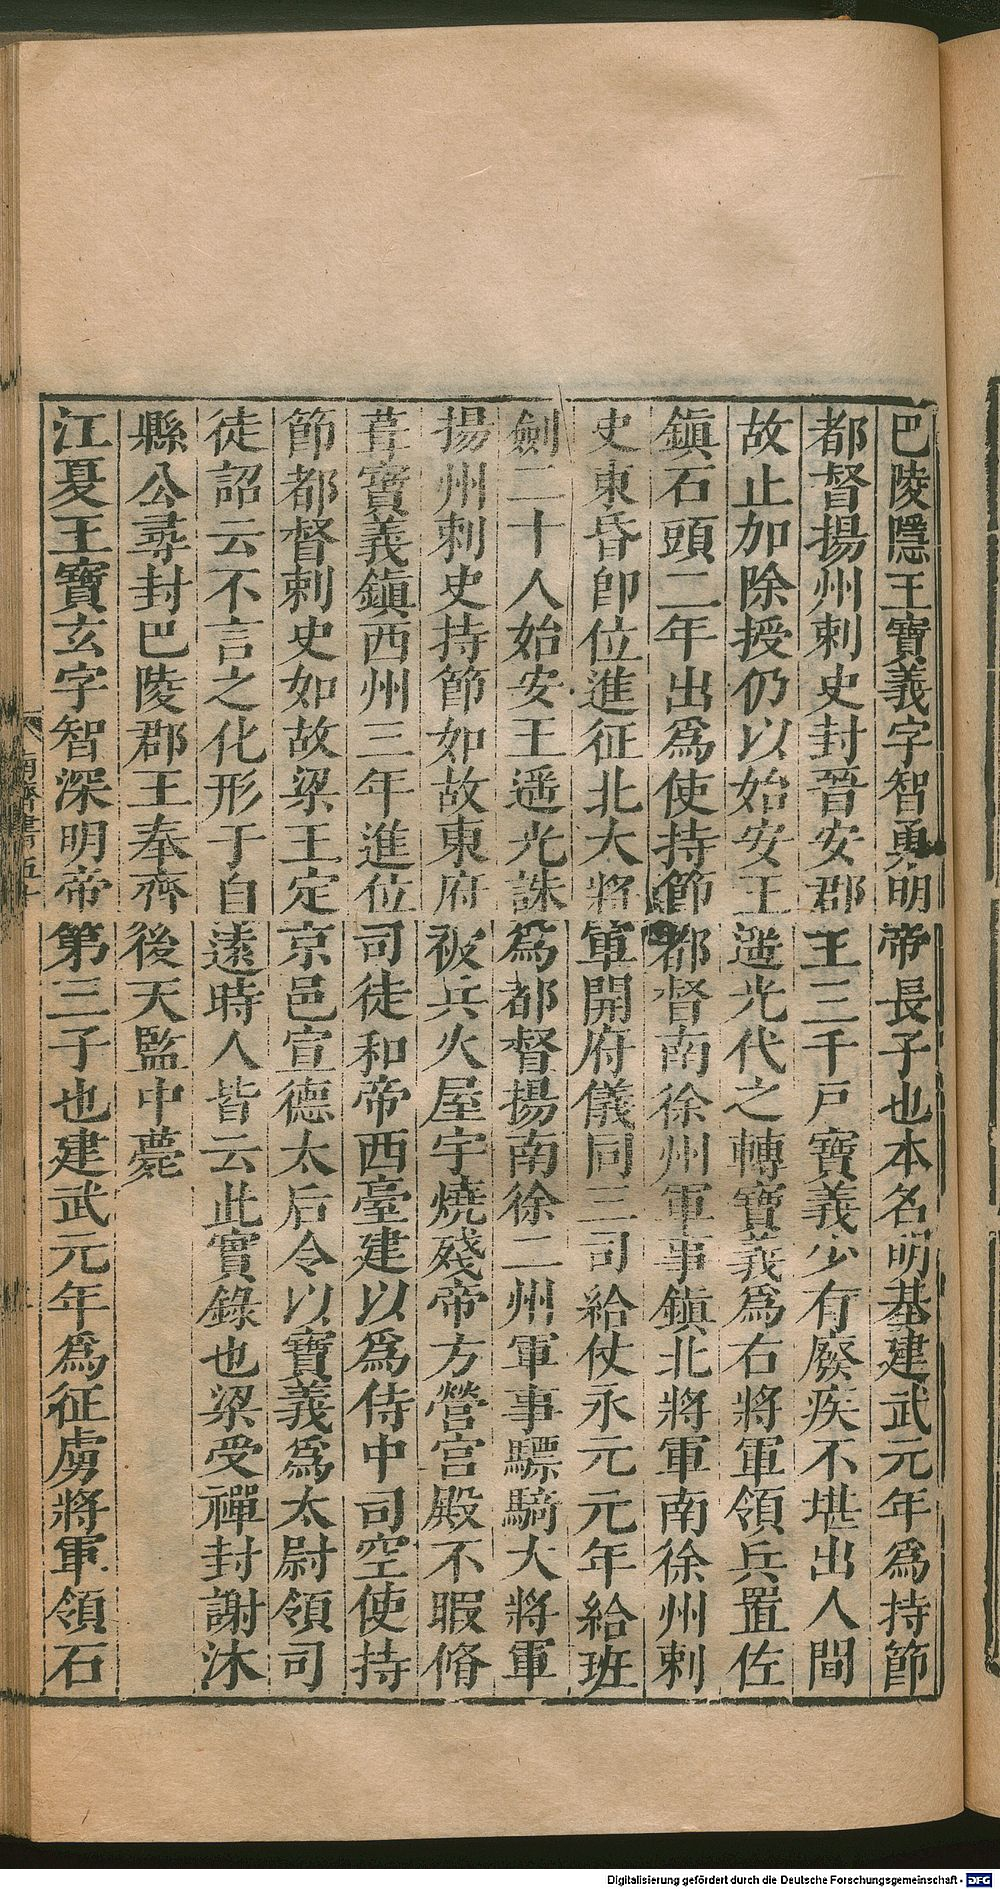 巴陵隱王寶義字智勇明帝長子也本名明基建武元年爲持節
都督揚州刺史封晉安郡王三千戸寶義少有廢疾不堪出人間
故止加除授仍以始安王遥光代之轉寶義爲右將軍領兵置佐
鎭石頭二年出爲使持節都督南徐州軍事鎭北將軍南徐州刺
史東昏卽位進征北大將軍開府儀同三司給仗永元元年給班
劍二十人始安王遥光誅爲都督揚南徐二州軍事驃騎大將軍
揚州刺史持節如故東府被兵火屋宇燒殘帝方營宮殿不暇脩
葺寶義鎭西州三年進位司徒和帝西臺建以爲侍中司空使持
節都督刺史如故梁王定京邑宣德太后令以寶義爲太尉領司
徒詔云不言之化形于自遠時人皆云此實錄也梁受禪封謝沐
縣公尋封巴陵郡王奉齊後天監中薨
江夏王寶玄字智深明帝第三子也建武元年爲征虜將軍領石
Digitalisierung gefördert durch die Deutsche Forschungsgemeinschaft - DFG